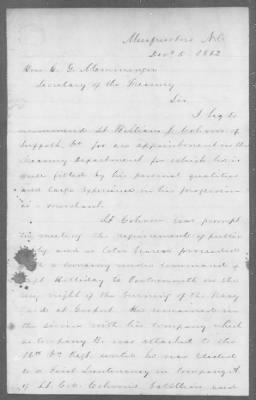 Murfreesboro N.C.
Decr 5 1862
Hon. C. G. Memminger
Secretary of the Treasury
Sir
I beg to
recommend Lt. William J. Cohoon of
Suffolk, Va for an appointment in the
Treasury Department for which he is
well fitted by his personal qualities
and large experience in his profession
as a merchant.
Lt Cohoon was prompt
in meeting the requirements of public
duty and as Color bearer proceeded
with a company under command of
Capt Holliday to Portsmouth on the
very night of the burning of the Navy
Yard at Gosport. He remained in
the service with his company which
as Company B. was attached to the
16th Va Regt. until he was elected
to a First Lieutenancy in Company A.
of Lt. Col. Cohoons battalion and